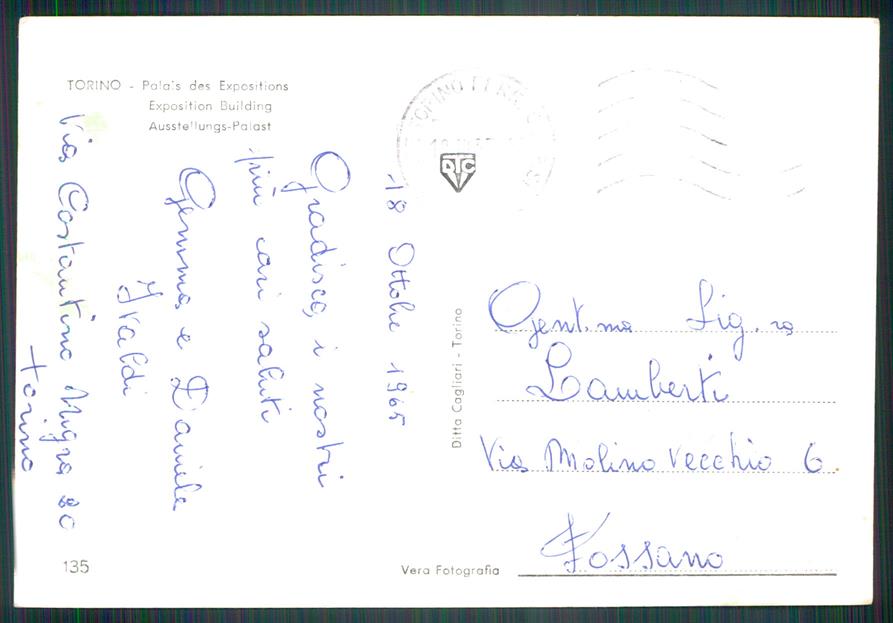 TORINO - Palais des Expositions
Exposition Building
Ausstellungs-Palast
18 Ottobre 1965
Gradisca, i nostri
più cari saluti
Gemma e Daniela
Ivaldi
Via Costantino Nigra 20
torino
135
DTC
Ditta Cagliari - Torino
Vera Fotografia
TORINO FERR
Gent.ma Sig.ra
Lamberti
Via Molino Vecchio 6
Fossano